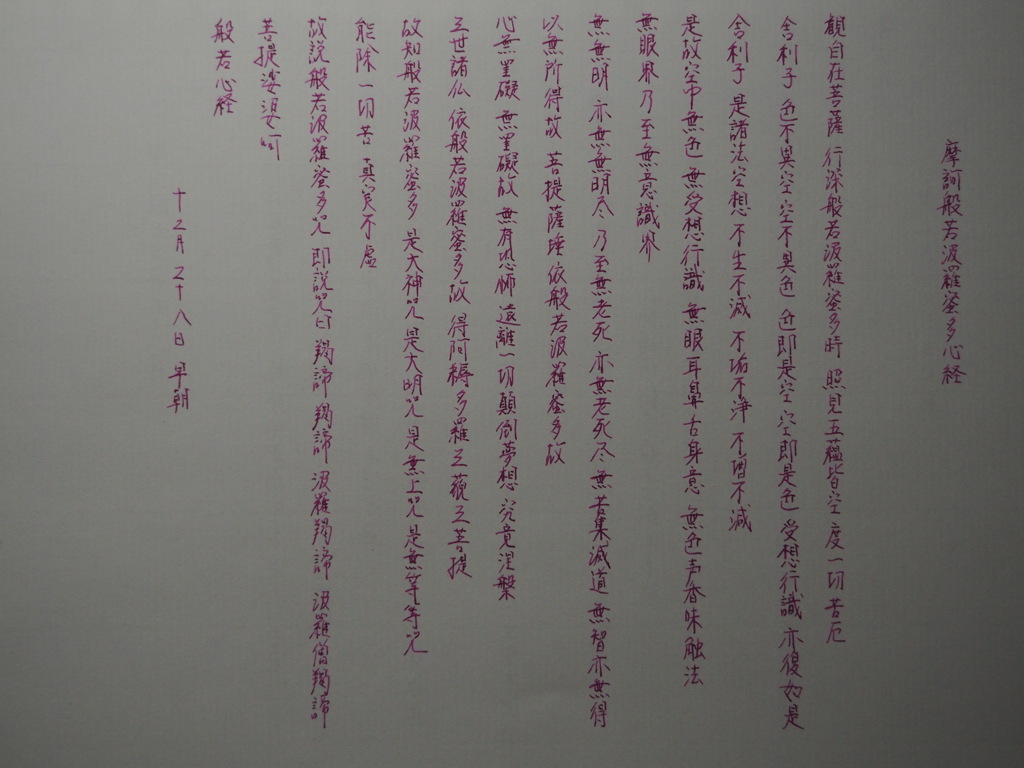 摩訶般若波羅蜜多心経
観自在菩薩 行深般若波羅蜜多時 照見五蘊皆空 度一切苦厄
舎利子 色不異空 空不異色 色即是空 空即是色 受想行識 亦復如是
舎利子 是諸法空想 不生不滅 不垢不浄 不増不減
是故空中無色 無受想行識 無眼耳鼻舌身意 無色声香味触法
無眼界乃至無意識界
無無明 亦無無明尽 乃至無老死 亦無老死尽 無苦集滅道 無智亦無得
以無所得故 菩提薩埵依般若波羅蜜多故
心無罣礙 無罣礙故 無有恐怖 遠離一切顛倒夢想 究竟涅槃
三世諸仏 依般若波羅蜜多故 得阿耨多羅三藐三菩提
故知般若波羅蜜多 是大神咒 是大明咒 是無上咒 是無等等咒
能除一切苦 真実不虚
故説般若波羅蜜多咒 即説咒曰 羯諦 羯諦 波羅羯諦 波羅僧羯諦
菩提娑婆訶
般若心経
十二月二十八日 早朝